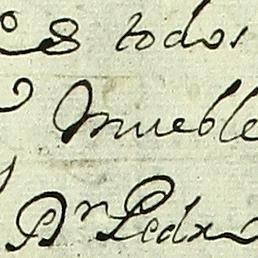 es todos
Mueble
Dn Pedro